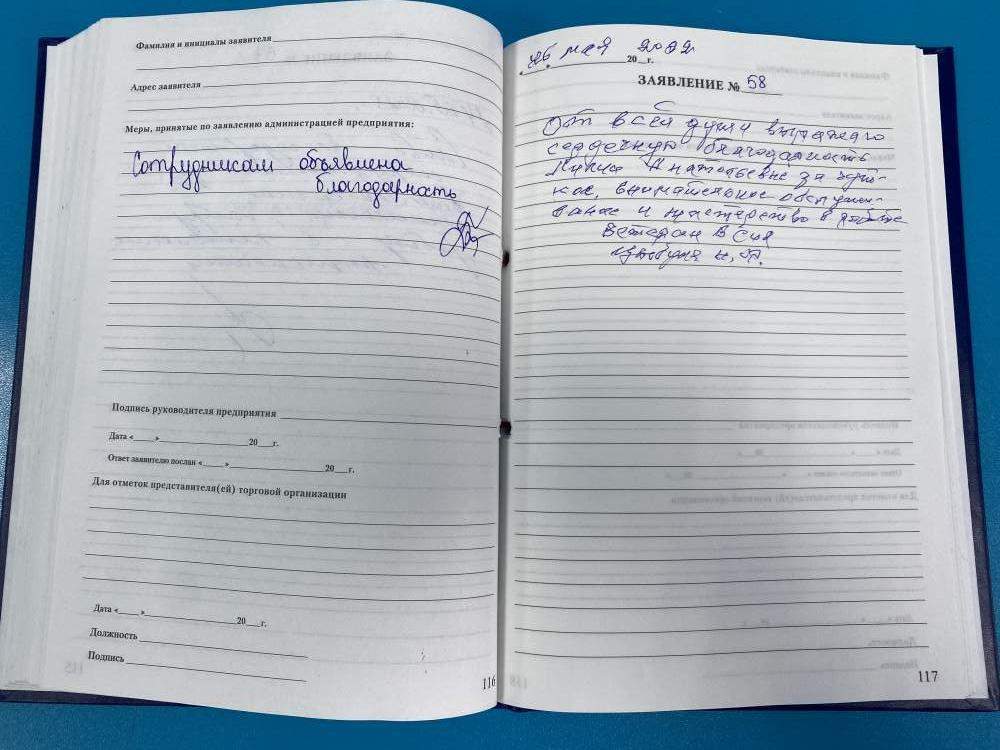 Фамилия и инициалы заявителя
Адрес заявителя
Меры, принятые по заявлению администрацией предприятия:
Сотрудникам объявлена
благодарность
Подпись руководителя предприятия
Дата «____» ____ 20__г.
Ответ заявителю послан «____» ____ 20__г.
Для отметок представителя(ей) торговой организации
Дата «____» ____ 20__г.
Должность
Подпись
116
26 мая 2022
«____» ____ 20__г.
ЗАЯВЛЕНИЕ № 58
От всей души выражаю
сердечную благодарность
Анатольевне за чут-
кое, внимательное обслужи-
вание и мастерство в работе
Ветеран
117